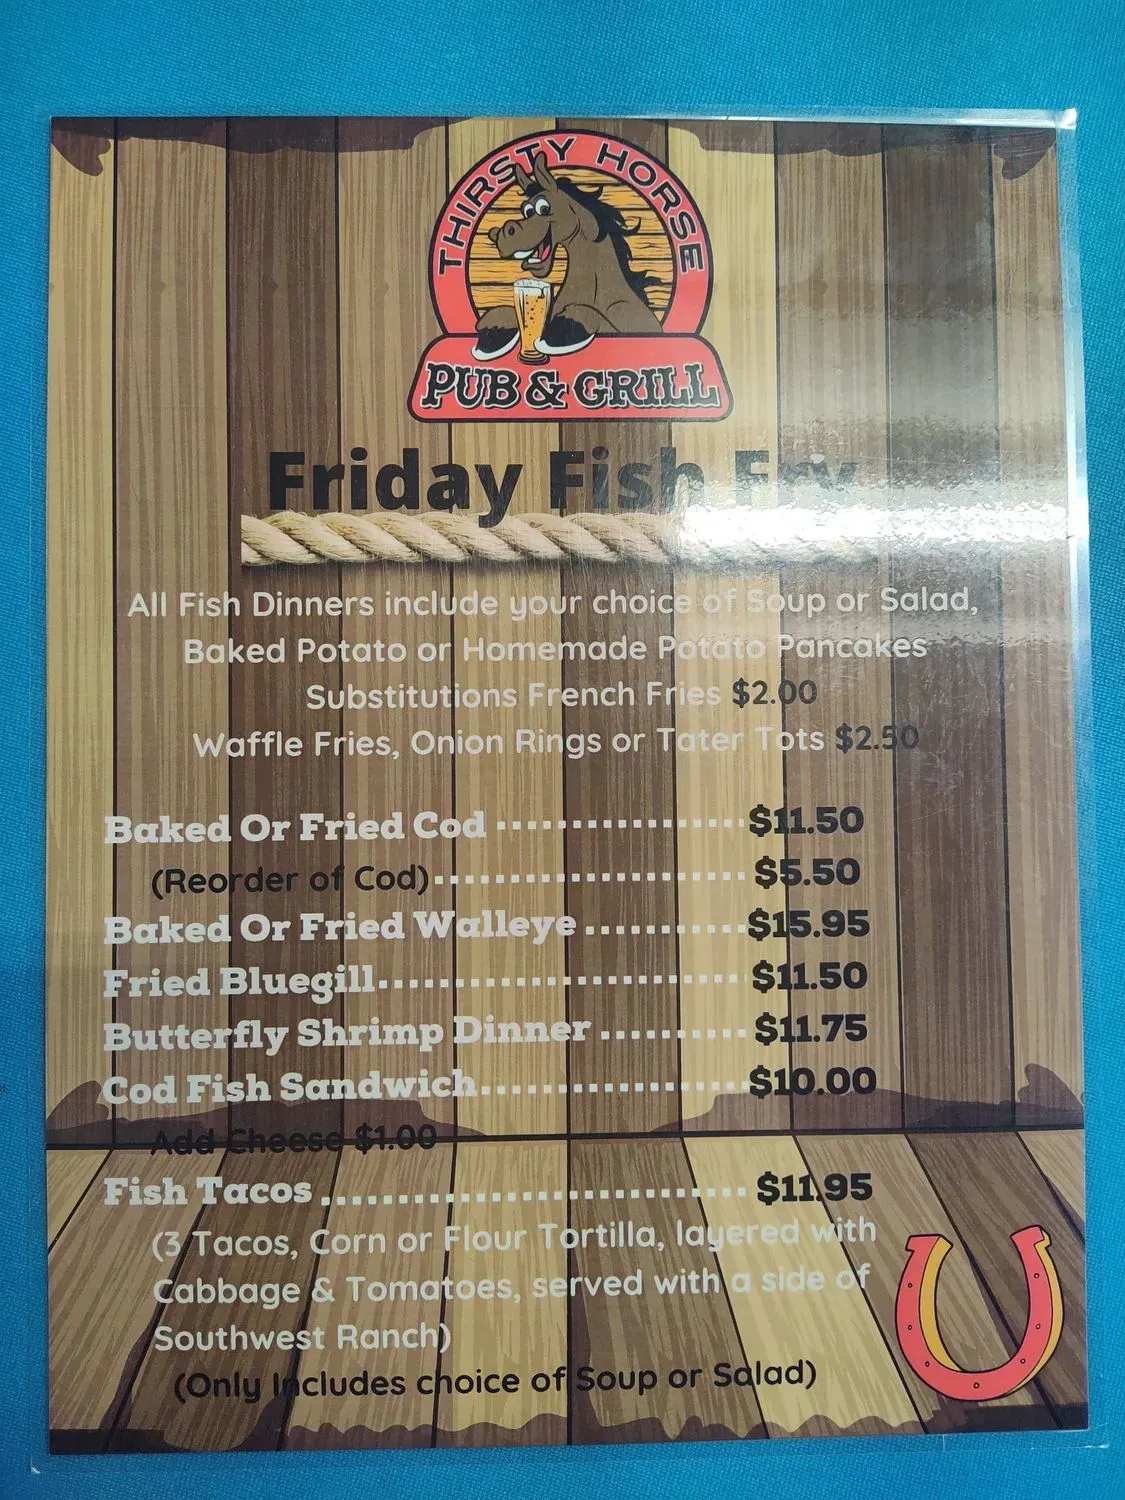 THIRSTY HORSE
PUB & GRILL
Friday Fish Fry
All Fish Dinners include your choice of Soup or Salad,
Baked Potato or Homemade Potato Pancakes
Substitutions French Fries $2.00
Waffle Fries, Onion Rings or Tater Tots $2.50
Baked Or Fried Cod ........................ $11.50
(Reorder of Cod)........................ $5.50
Baked Or Fried Walleye............ $15.95
Fried Bluegill........................ $11.50
Butterfly Shrimp Dinner........... $11.75
Cod Fish Sandwich..................... $10.00
Add Cheese $1.00
Fish Tacos ............................ $11.95
(3 Tacos, Corn or Flour Tortilla, layered with
Cabbage & Tomatoes, served with a side of
Southwest Ranch)
(Only Includes choice of Soup or Salad)